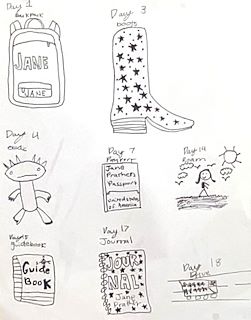 Day 1
backpack
JANE
JANE
Day 3
boots
Day 4
exotic
Day 7
Passport
Jane
Prathers
Passport
United States
of America
Day 14
Roam
Day 15
guidebook
Guide
Book
Day 17
Journal
JOUR
NAL
Jane
Prather
Day 18
Drive